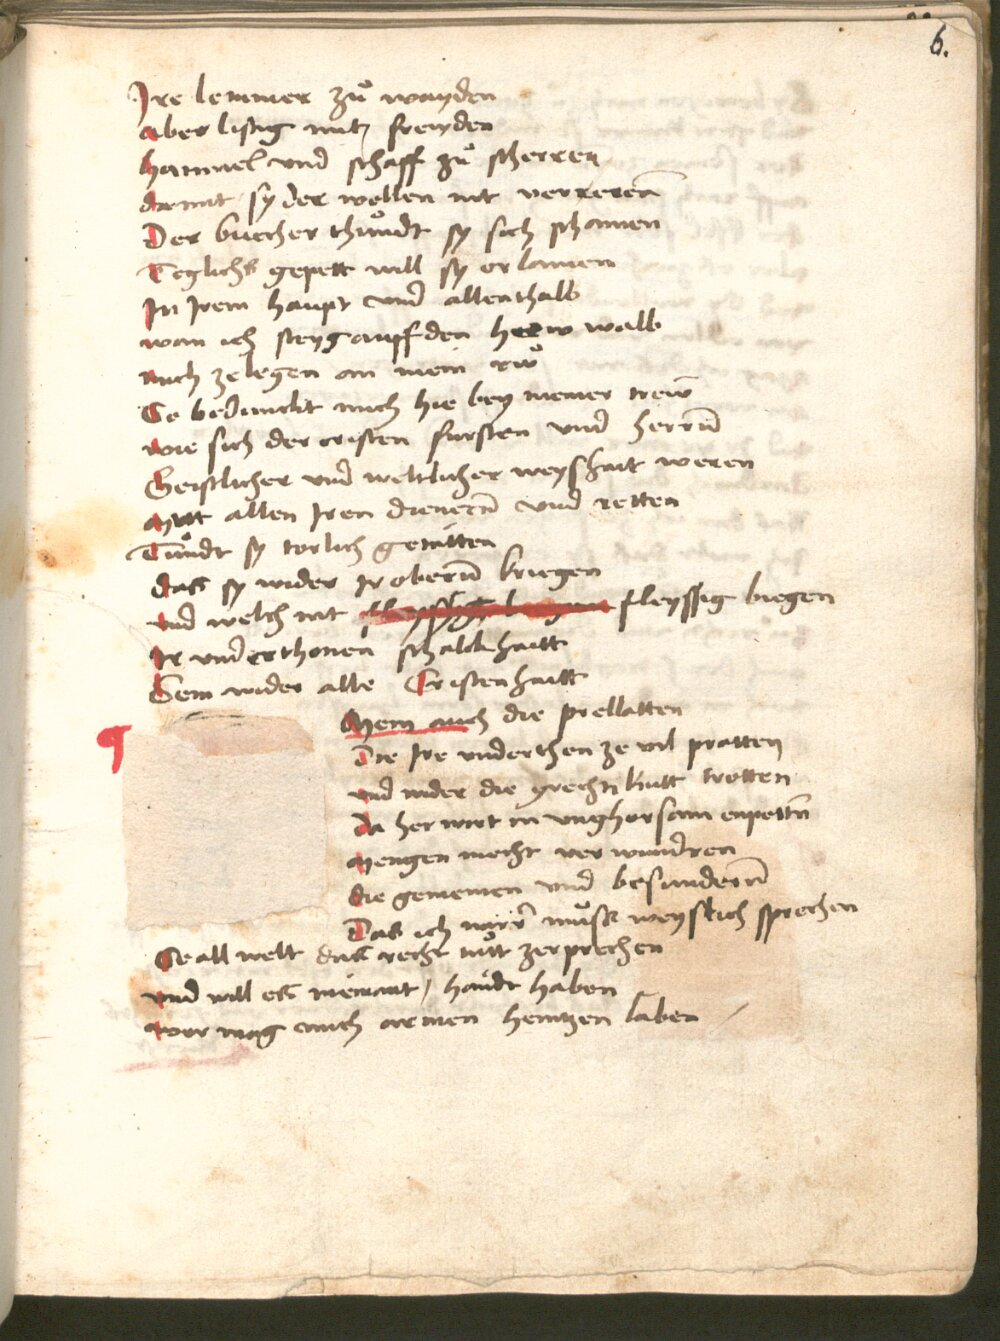 6.
Ire lemmer zů wayden
Aber listig mitz frewden
Hammel vnd schaff zů scherren
damit sy der wollen nit verreren
Der buecher thůndt sy sich schamen
Teglichs gepett will sy erlamen
In Irem haupt vnd allenthalb
wan ich steyg auff den walb
mich ze legen an mein rů
So beduncht mich hie bey meiner trew
wie sich der cristen fursten vnd herrn
Geistlicher vnd weltlicher weyshait weren
Mitt allen Iren dienern vnd retten
Tůndt sy torlich
das sy wider Ir obern kriegen
vnd welch nit fleyssig biegen
Ir vnderthonen schalckhaitt
Sein wider alle Cristenhaitt
Mein auch die prellatten
Die Ire vnderthen ze vil pratten
vnd wider die grechtikaitt trotten
Da her wirt in vnghorsam enpotten
Mengen mecht verwundren
die gemeinen vnd besundern
Das ich narr můsz weyslich sprechen
So all welt das recht tůtt zerprechen
vnd will es niemant / handt haben
wer mag mich armen heintzen laben